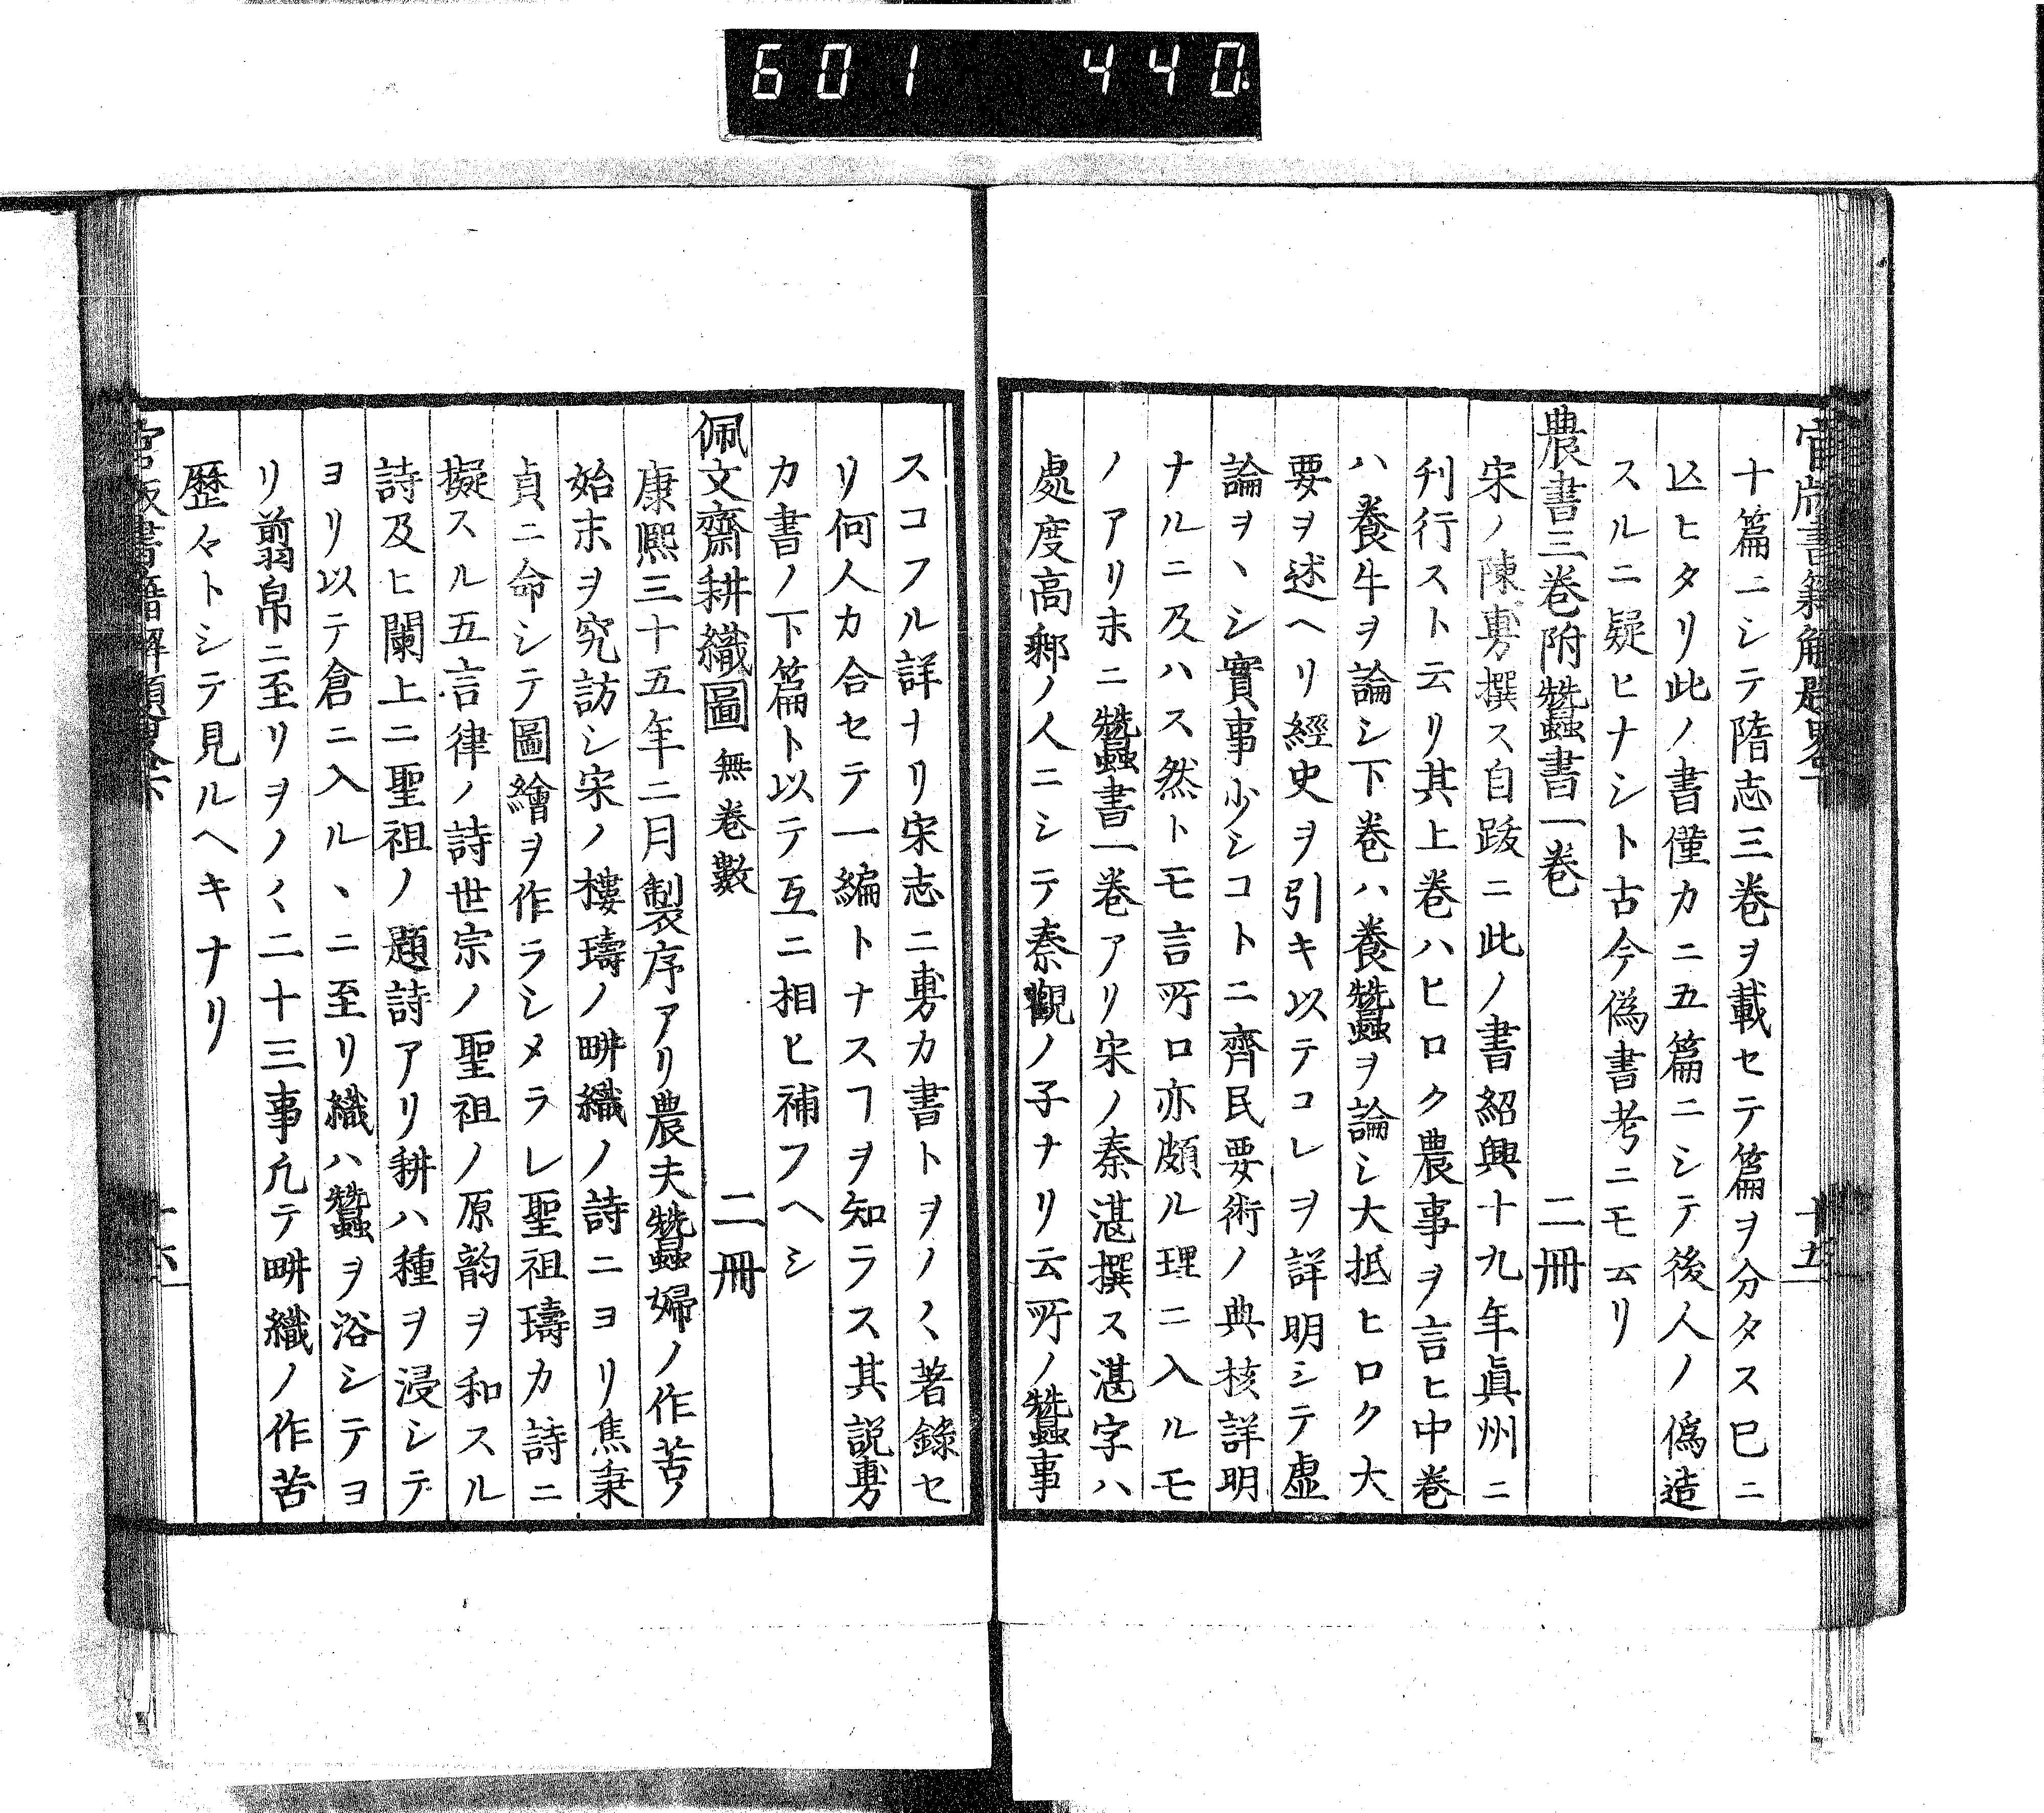 601 440
官版書籍解題畧下 十五
十篇ニシテ隋志三卷ヲ載セテ篇ヲ分タス巳ニ
亾ヒタリ此ノ書僅カニ五篇ニシテ後人ノ僞造
スルニ疑ヒナシト古今僞書考ニモ云リ
農書三卷附蠶書一卷 二冊
宋ノ陳旉撰ス自跋ニ此ノ書紹興十九年眞州ニ
刊行スト云リ其上卷ハヒロク農事ヲ言ヒ中卷
ハ養牛ヲ論シ下卷ハ養蠶ヲ論シ大抵ヒロク大
要ヲ述ヘリ經史ヲ引キ以テコレヲ詳明シテ虛
論ヲヽシ實事少シコトニ齊民要術ノ典核詳明
ナルニ及ハス然トモ言所ロ亦頗ル理ニ入ルモ
ノアリ末ニ蠶書一卷アリ宋ノ秦湛撰ス湛字ハ
處度高郵ノ人ニシテ秦觀ノ子ナリ云所ノ蠶事
スコフル詳ナリ宋志ニ旉カ書トヲノ〱著錄セ
リ何人カ合セテ一編トナスヿヲ知ラス其説旉
カ書ノ下篇ト以テ互ニ相ヒ補フヘシ
佩文齋耕織圖 無卷數 二冊
康熙三十五年二月製序アリ農夫蠶婦ノ作苦ノ
始末ヲ究訪シ宋ノ樓璹ノ畊織ノ詩ニヨリ焦秉
貞ニ命シテ圖繪ヲ作ラシメラレ聖祖璹カ詩ニ
擬スル五言律ノ詩世宗ノ聖祖ノ原韵ヲ和スル
詩及ヒ闌上ニ聖祖ノ題詩アリ耕ハ種ヲ浸シテ
ヨリ以テ倉ニ入ルヽニ至リ織ハ蠶ヲ浴シテヨ
リ翦帛ニ至リヲノ〱二十三事凢テ畊織ノ作苦
歷々トシテ見ルヘキナリ
官版書籍解題畧下 十六